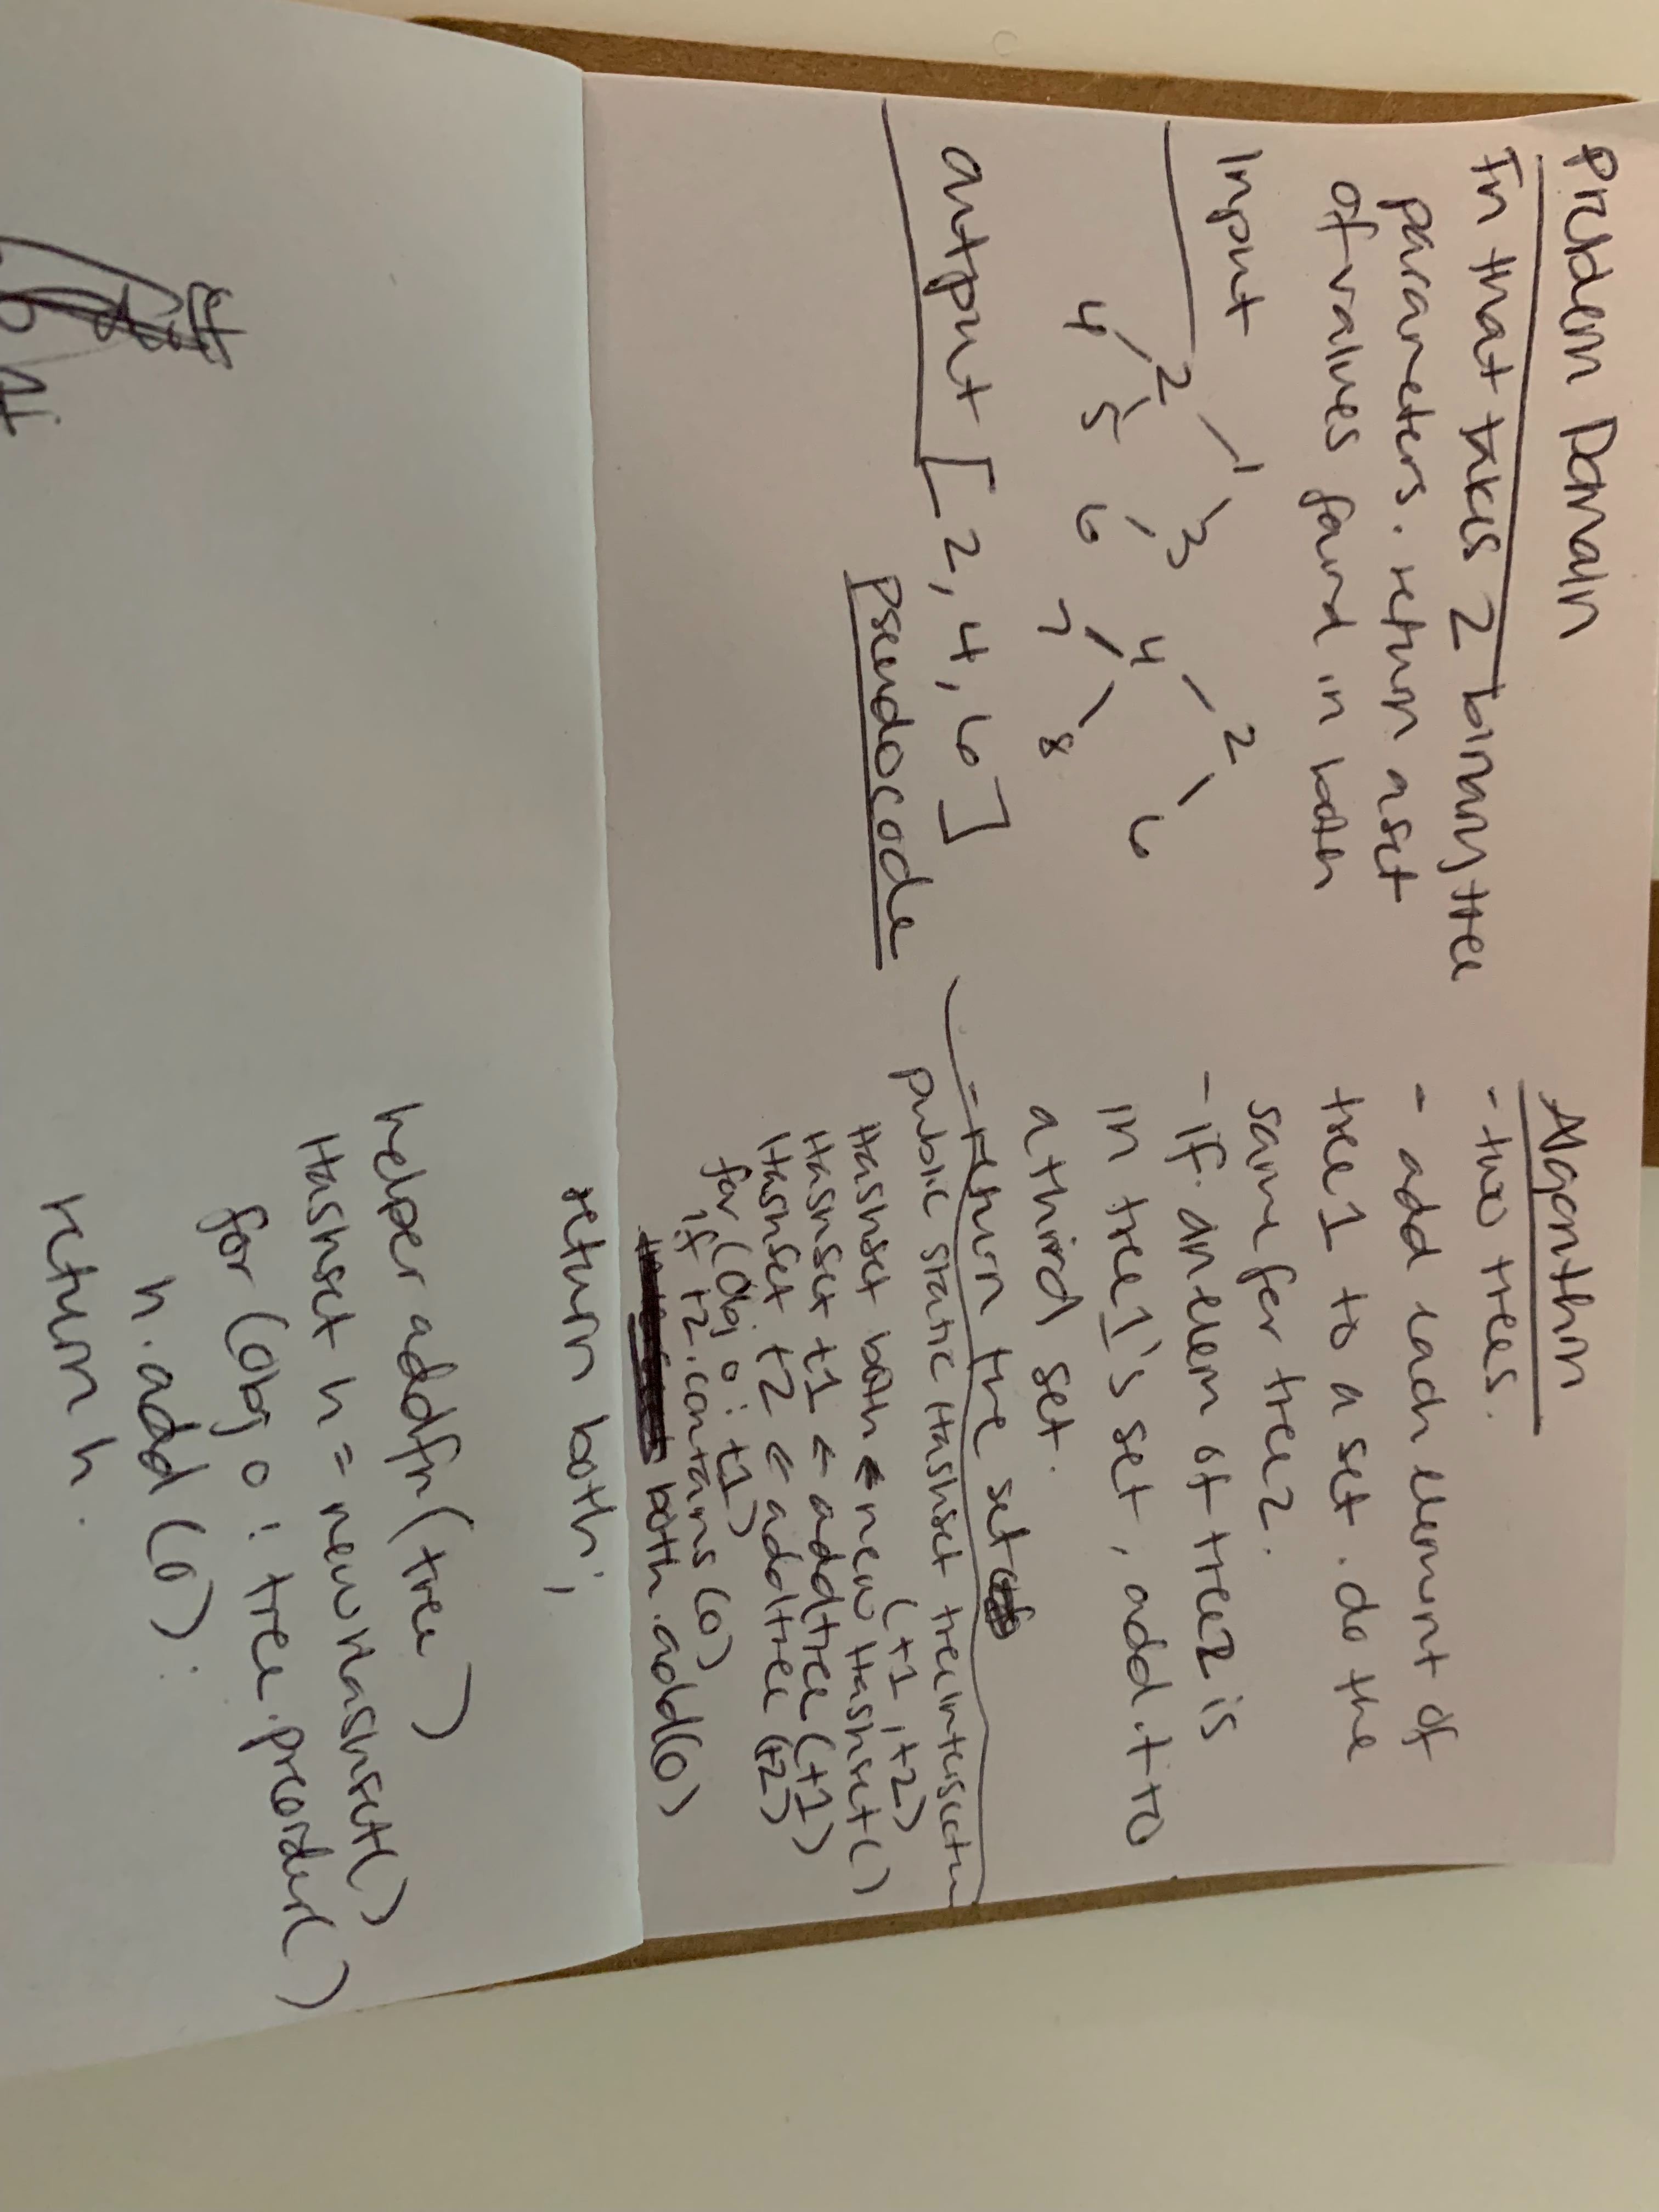 Problem Domain
fn that takes 2 binary tree
parameters. return a set
of values found in both
Input
1 2
2 3 4 6
4 5 6 7 8
output [2, 4, 6]
Algorithm
- two trees.
- add each element of
tree 1 to a set. do the
same for tree 2.
- if an elem of tree 2 is
in tree 1's set, add it to
a third set.
- return the set
Pseudocode
public static Hashset treeintersectn
(t1, t2)
Hashset both ← new Hashset()
Hashset t1 ← addtree(t1)
Hashset t2 ← addtree(t2)
for (Obj o : t1)
if t2.contains(o)
both.add(o)
return both;
helper addfn(tree)
Hashset h = new Hashset()
for (obj o : tree.preorder()
h.add(o);
return h.